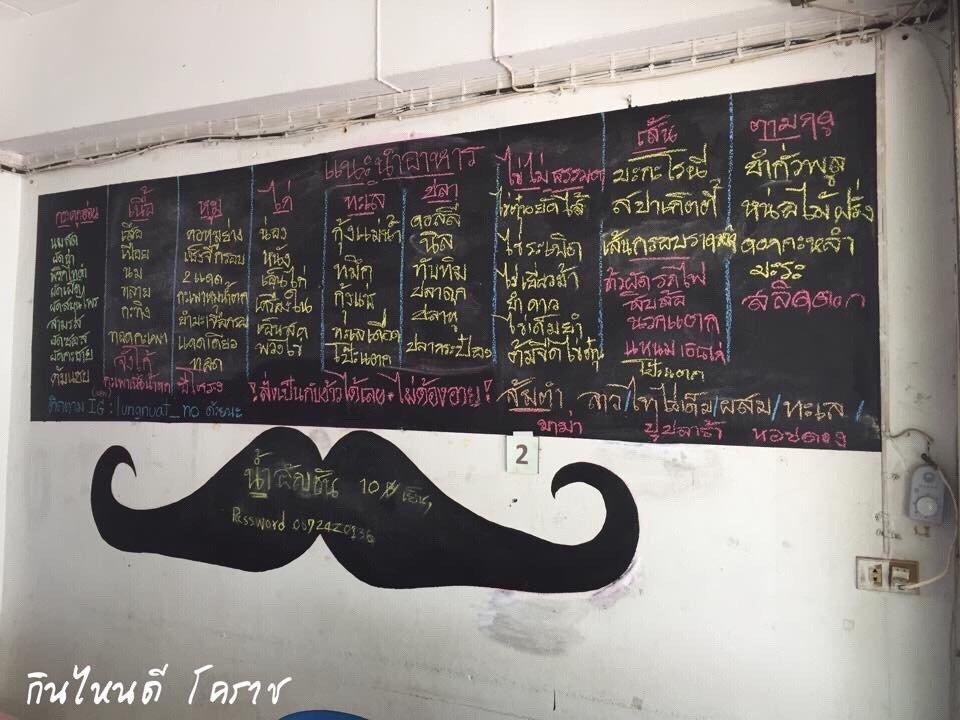 แนะนำอาหาร
กระดูกอ่อน
นมสด
ผัดเผ็ด
ผัดสมุนไพร
สามรส
ผัดซอส
ผัดกะชาย
ต้มแซบ
เนื้อ
เสือ
เปื่อย
นม
ทลาย
กะทิง
ทอดกะเพา
จิ้งโก้
กะเพาเนื้อน้ำตก
หมู
คอหมูย่าง
2 แดด
กะเพาหมูน้ำตก
แดดเดียว
ทอด
ซี่โครง
ไก่
น่อง
หนัง
เอ็นไก่
เครื่องใน
พวงไข่
ทะเล
กุ้งแม่น้ำ
ทมึก
กุ้งแช่
ทะเลเดือด
โป๊ะแตก
ปลา
ดอลลี่
นิล
ทับทิม
ปลาดุก
ปลาทู
ปลากระป๋อง
ไข่ไม่ธรรมดา
ไข่ตุ๋นยัดไส้
ไข่ระเบิด
ไข่เยี่ยวม้า
ยำดาว
ไข่เค็มยำ
ต้มจืดไข่ตุ๋น
เส้น
มะกะโรนี
สปาเกตตี้
เส้นกรอบราดหน้า
ข้าวผัดรถไฟ
สิบล้อ
นวกแตก
แหนมเอ็นไก่
โป๊ะแตก
ตามฤดู
ยำถั่วพลู
หน่อไม้ฝรั่ง
ดอกกะหล่ำ
มะระ
สลิดดอก
!สั่งเป็นกับข้าวได้เลย + ไม่ต้องอาย!
ติดตาม IG : lungnuat_no ด้วยนะ
ส้มตำ ลาว/ไทไข่เค็ม/ผสม/ทะเล/
มาม่า ปูปลาร้า หอยดอง
2
น้ำอัญชัน 10฿ เย็นๆ
Password 0872420136
กินไหนดี โคราช